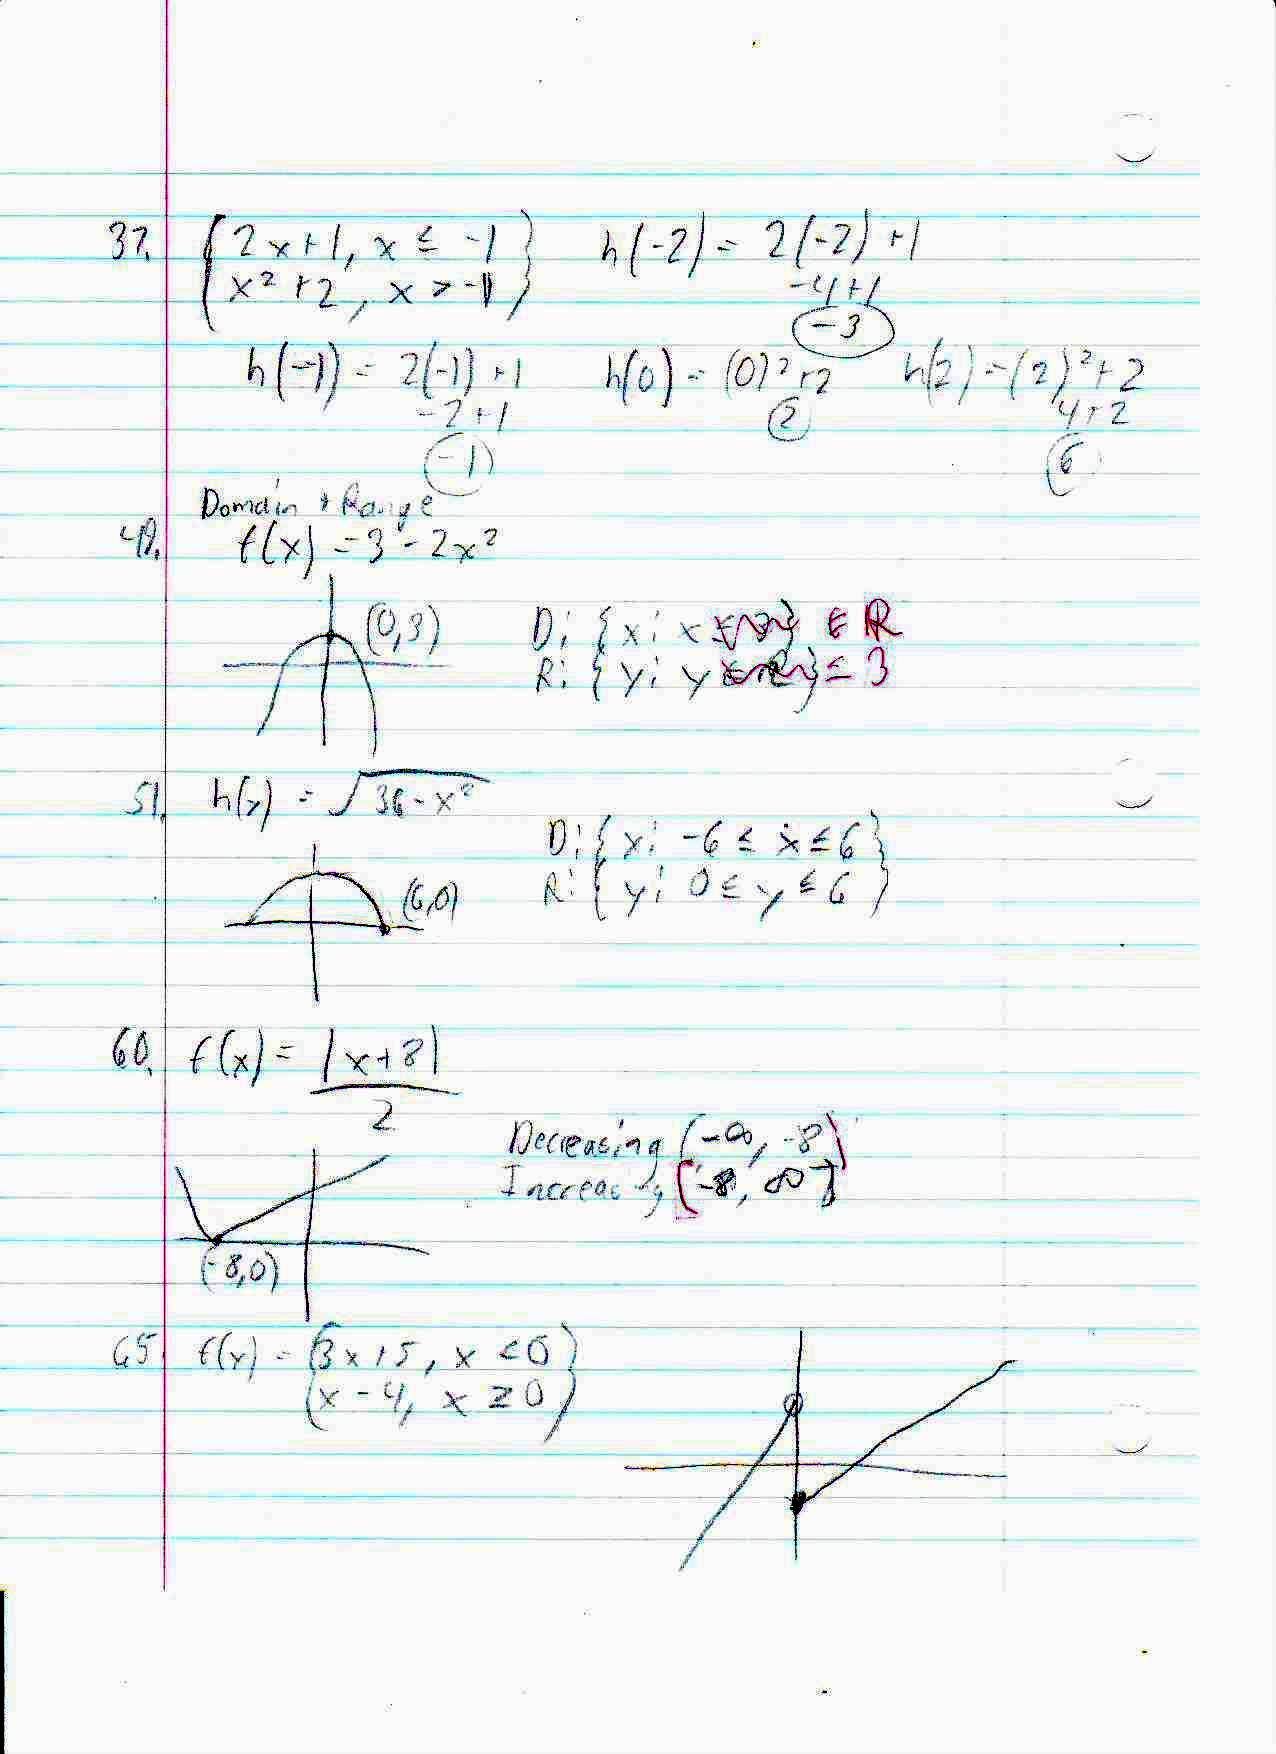 37. { 2x+1, x ≤ -1 } h(-2) = 2(-2)+1
{ x² + 2, x > -1 } -4+1
-3
h(-1) = 2(-1)+1 h(0) = (0)²+2 h(2) = (2)²+2
-2+1 2 4+2
-1 6
Domain + Range
49. f(x) = 3 - 2x²
(0,3) D: {x: x ∈ ℝ
R: {y: y } ≤ 3
51. h(x) = √36-x²
D: {x: -6 ≤ x ≤ 6}
(6,0) R: {y: 0 ≤ y ≤ 6}
60. f(x) = |x+8|
2
Decreasing (-∞, -8)
Increasing [-8, ∞)
(-8,0)
65. f(x) = { 3x+5, x < 0 }
{ x - 4, x ≥ 0 }